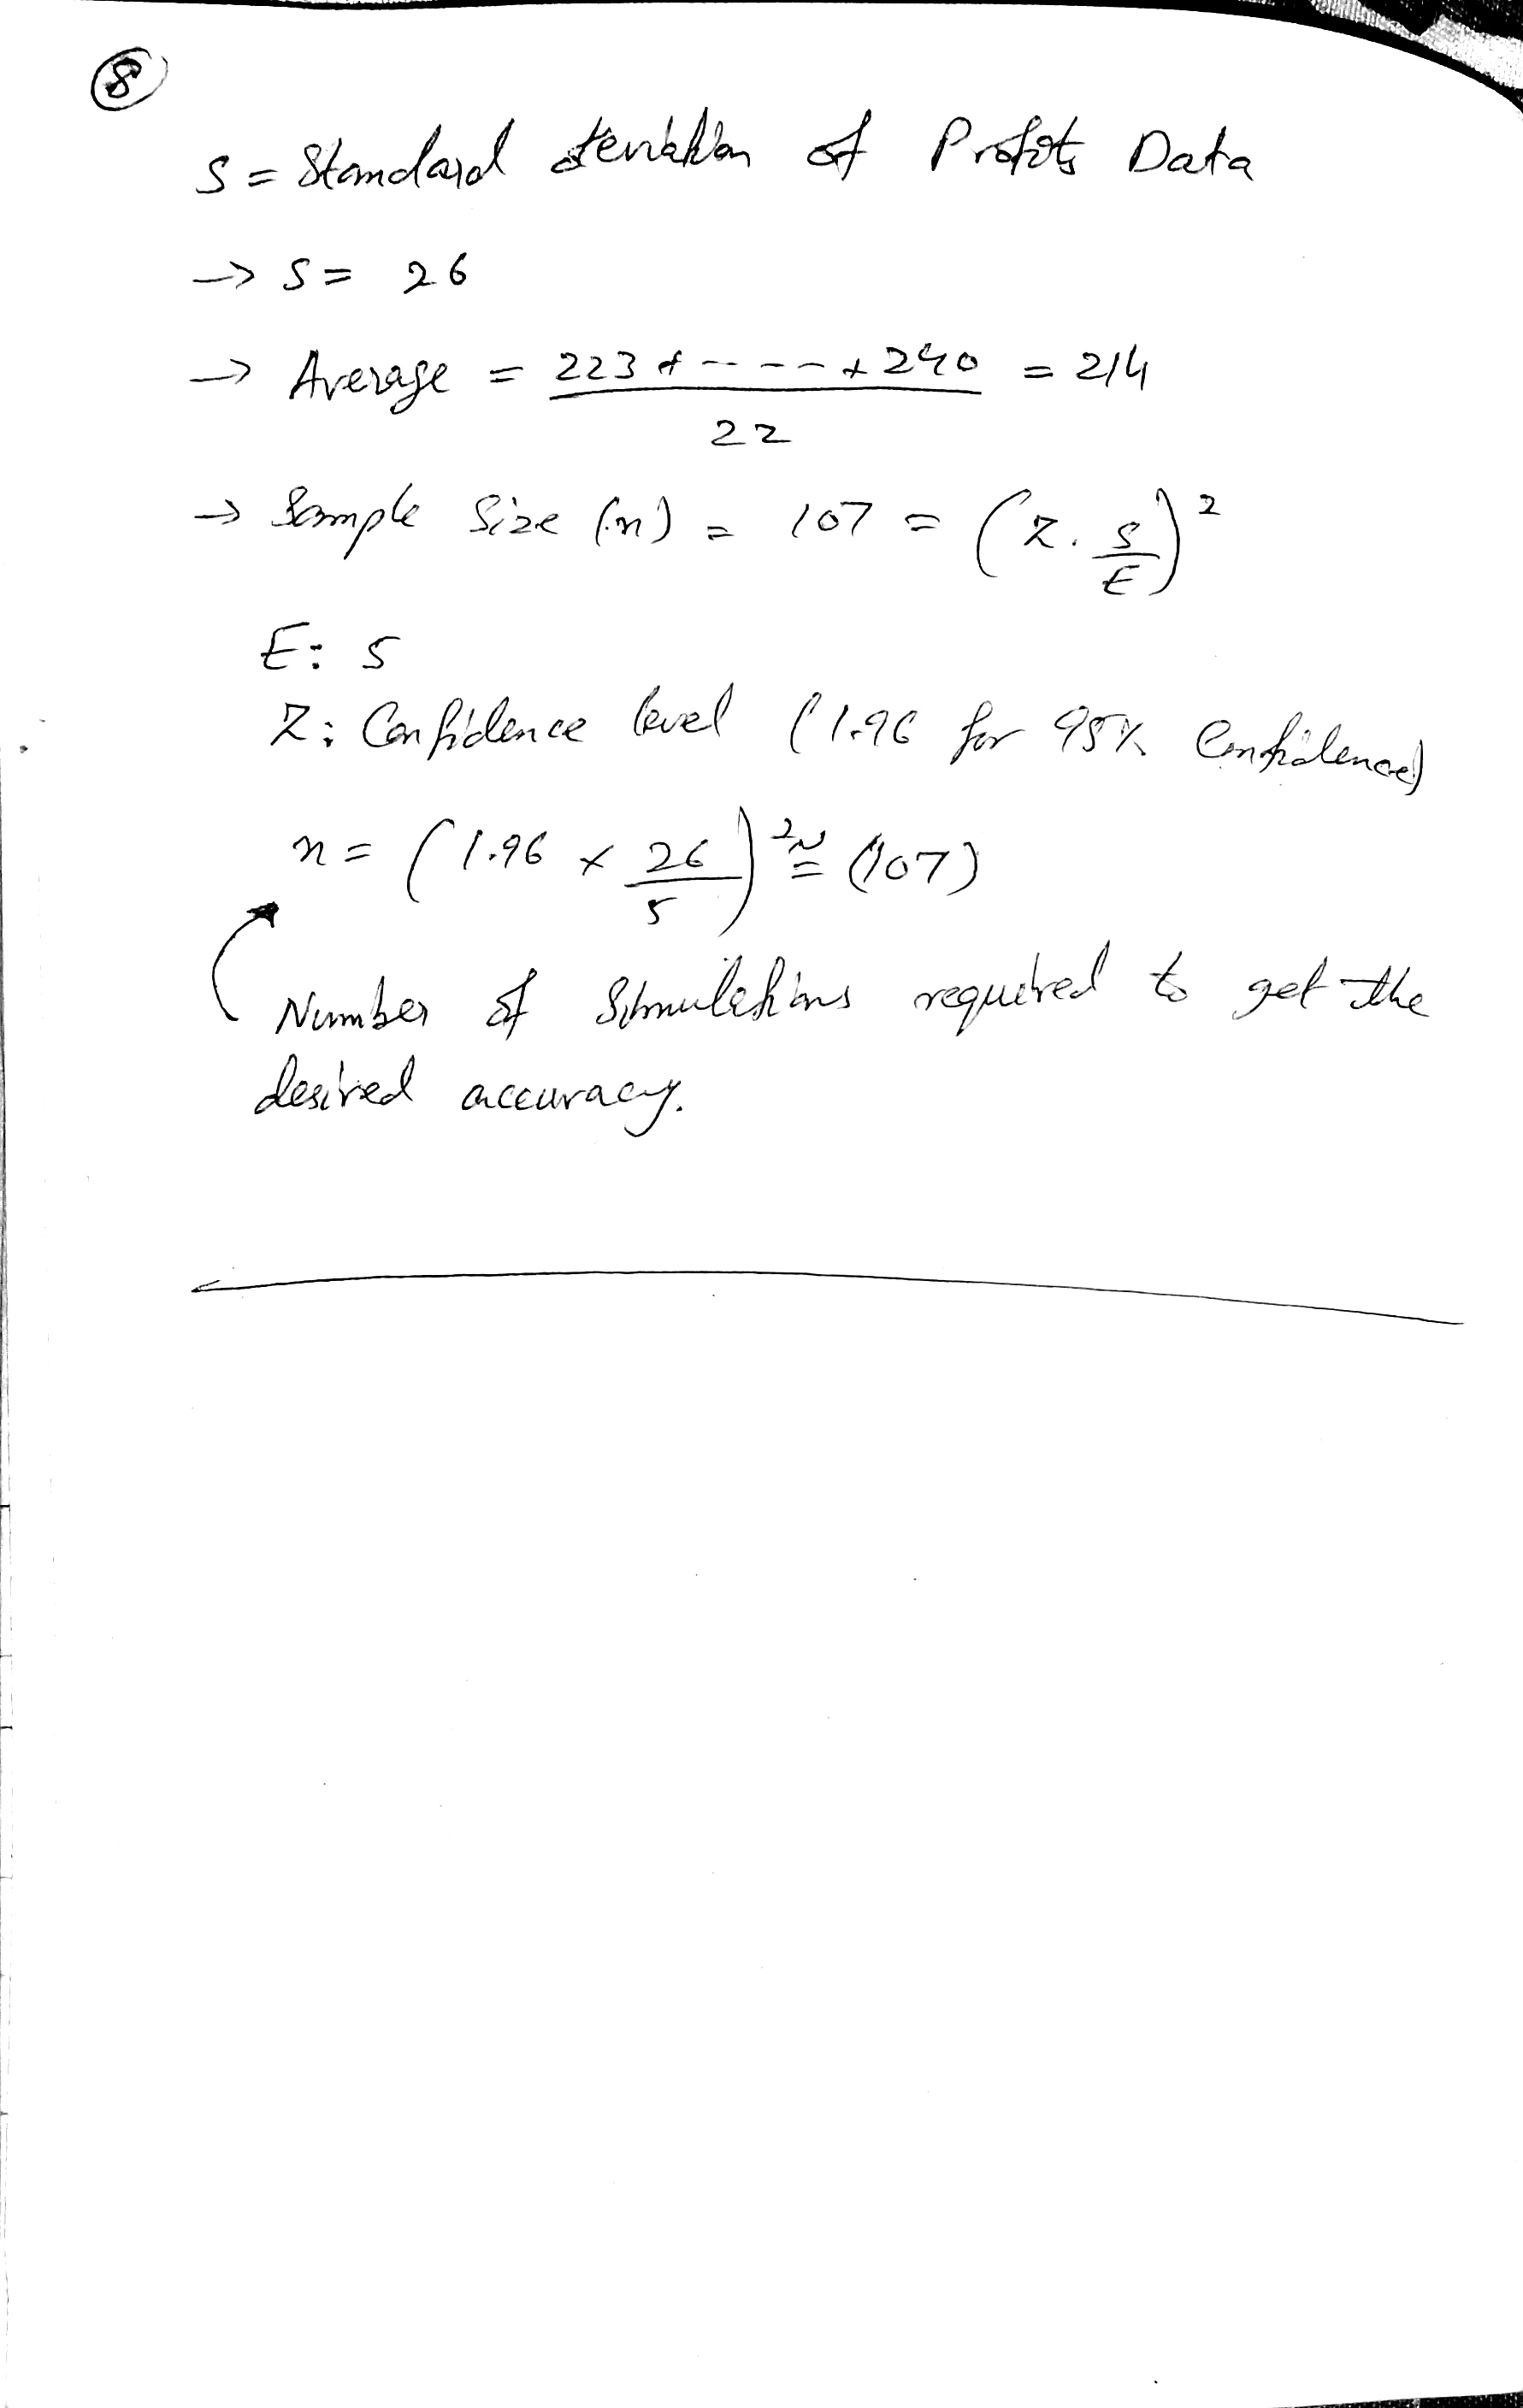 8
S = Standard deviation of Profits Data
→ S = 26
→ Average = 223 + ---- + 240 / 22 = 214
→ Sample Size (n) = 107 = (Z. S/E)²
E: 5
Z: Confidence level (1.96 for 95% Confidence)
n = (1.96 × 26/5)² ≅ (107)
Number of Simulations required to get the
desired accuracy.